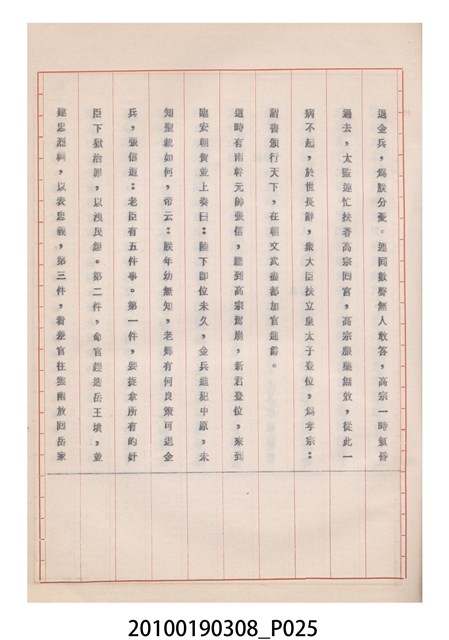 退金兵,爲朕分憂。連問數聲無人敢答,高宗一時氣昏
過去,太監連忙扶着高宗回宮,高宗服藥無效,從此一
病不起,於世長辭,衆大臣扶立皇太子登位,爲孝宗:
詔書頒行天下,在朝文武盡都加官進爵。
這時有南幹元帥張信,聽到高宗駕崩,新君登位,來到
臨安朝賀並上奏曰:陛下卽位未久,金兵進犯中原,未
知聖裁如何,帝云:朕年幼無知,老卿有何良策可退金
兵,張信道:老臣有五件事。第一件,要捉拿所有的奸
臣下獄治罪,以洩民憤。第二件,命官趕造岳王墳,並
建忠烈祠,以表忠義,第三件,着差官往雲南放回岳家
20100190308_P025